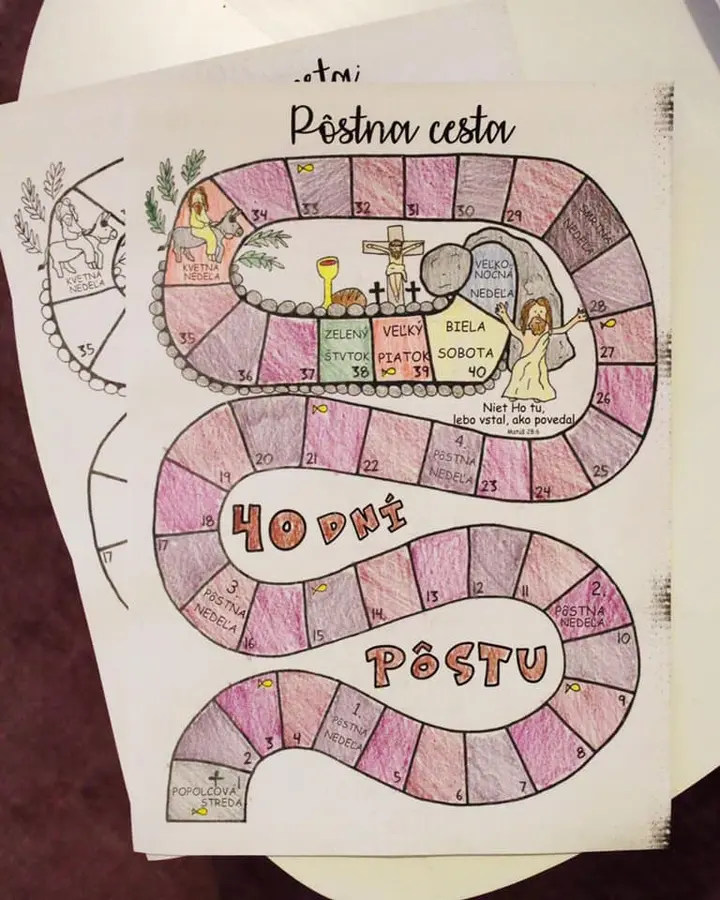 Pôstna cesta
34
33
32
31
30
29
SMRTNÁ
NEDEĽA
28
27
26
25
KVETNÁ
NEDEĽA
35
36
37
ZELENÝ
ŠTVTOK
38
VEĽKÝ
PIATOK
39
BIELA
SOBOTA
40
VEĽKO-
NOČNÁ
NEDEĽA
Niet Ho tu,
lebo vstal, ako povedal.
Matúš 28:6
24
23
4.
PÔSTNA
NEDEĽA
22
21
20
19
18
17
40 DNÍ
3.
PÔSTNA
NEDEĽA
16
15
14
13
12
11
2.
PÔSTNA
NEDEĽA
10
9
8
PÔSTU
7
6
5
1.
PÔSTNA
NEDEĽA
4
3
2
1
POPOLCOVÁ
STREDA
KVETNÁ
NEDEĽA
35
17